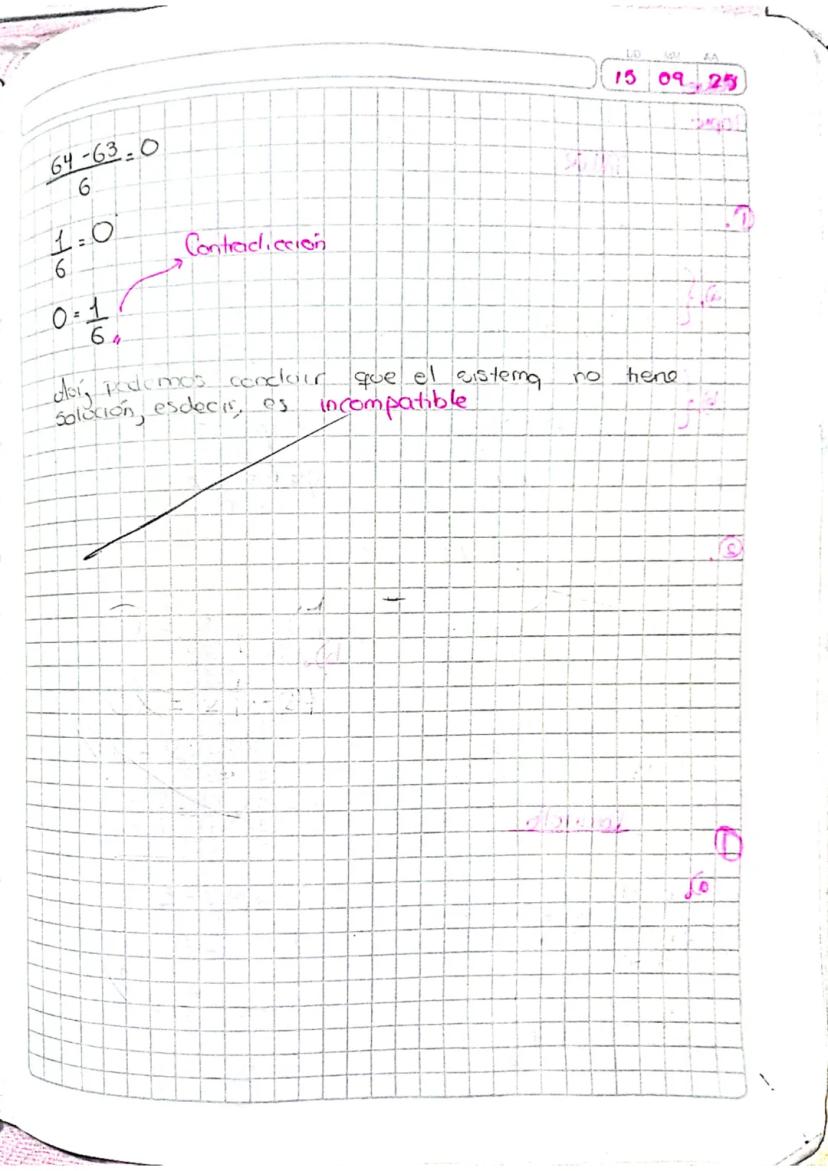 DD MM AA
15 09 25
64-63 = 0
6
1 = 0
6
Contradicción
0 = 1
6
Así, podemos concluir que el sistema no tiene
solución, es decir, es incompatible